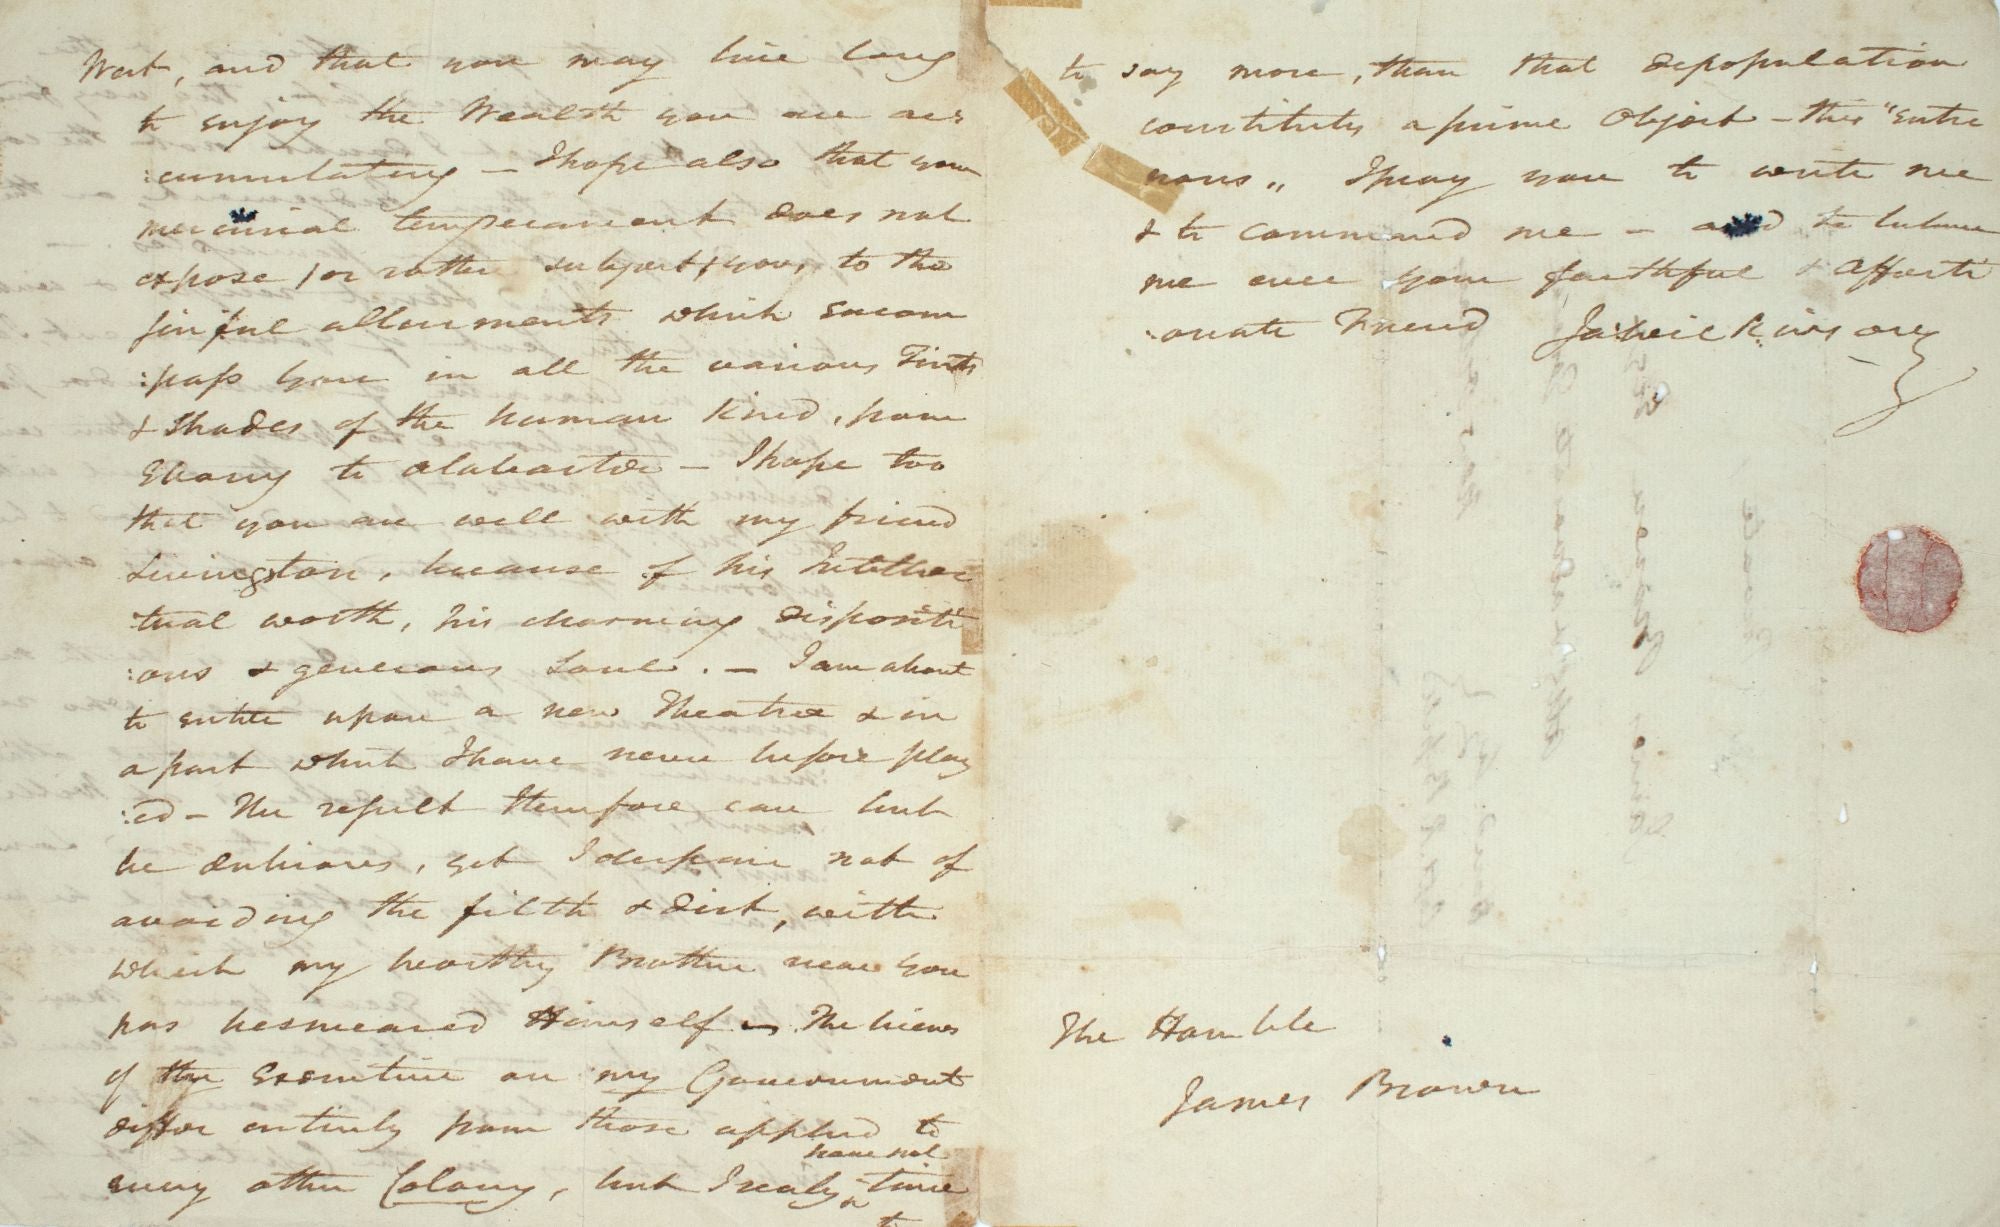 West, and that you may live long
to enjoy the Wealth you are ac:
:cumulating – I hope also that your
mercurial temperament does not
expose / or rather subject / you, to the
sinful allurements which encom
:pass you in all the various Tints
& Shades of the human kind, from
Ebony to Alabaster – I hope too
that you are well with my friend
Livingston, because of his Intellec
:tual worth, his charming dispositi
:ons & generous Soul. – I am about
to enter upon a new Theatre & in
a part which I have never before play
:ed – The result therefore can but
be dubious, yet I despair not of
avoiding the filth & dirt, with
which my worthy Brother near you
has besmeared Himself – The views
of the Executive on my Government
differ entirely from those applied to
every other Colony, but I realy have not time
to
to say more, than that depopulation
constitutes a prime Object – this "entre
nous„ I pray you to write me
& to command me – and to believe
me ever your faithful & affecti
:onate Friend Ja: Wilkinson
The Honble
James Brown